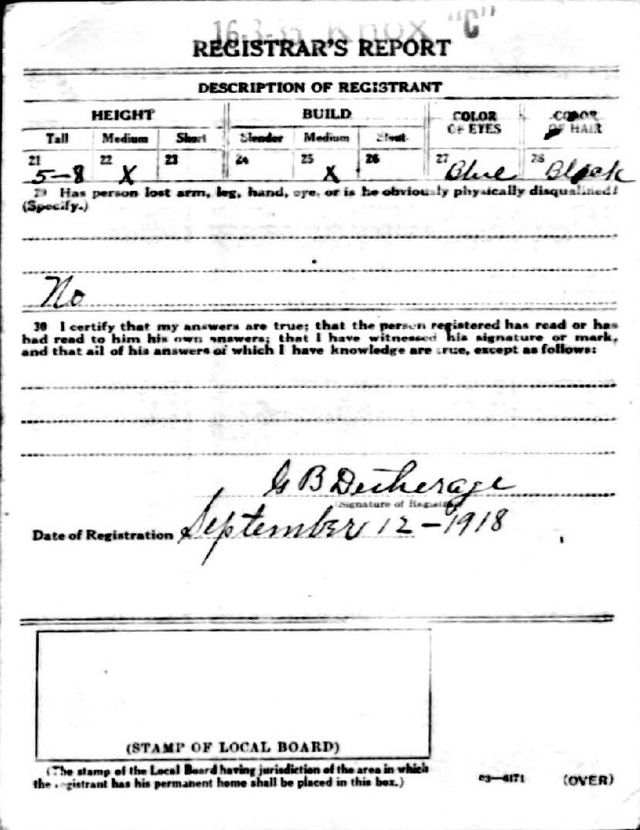 16-3-3 Knox "C"
REGISTRAR'S REPORT
DESCRIPTION OF REGISTRANT
HEIGHT BUILD COLOR OF EYES COLOR OF HAIR
Tall Medium Short Slender Medium Stout
21 5-8 22 X 23 24 25 X 26 27 Blue 28 Black
29 Has person lost arm, leg, hand, eye, or is he obviously physically disqualified?
(Specify.)
No
30 I certify that my answers are true; that the person registered has read or has
had read to him his own answers; that I have witnessed his signature or mark,
and that all of his answers of which I have knowledge are true, except as follows:
G B Detherage
Signature of Registrar
Date of Registration September 12-1918
(STAMP OF LOCAL BOARD)
(The stamp of the Local Board having jurisdiction of the area in which
the registrant has his permanent home shall be placed in this box.)
03—6171 (OVER)